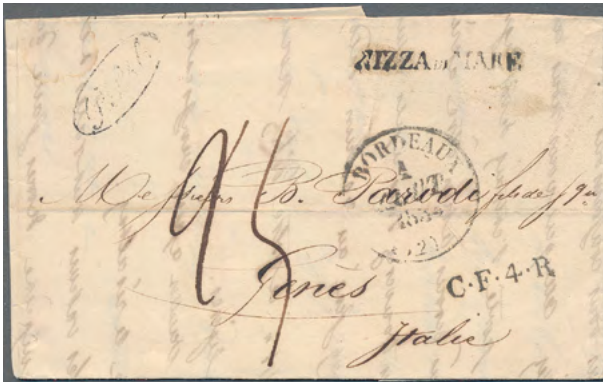 NIZZA DI MARE
BORDEAUX
1
AOUT
183
(32)
Messieurs B. Parodi fils de Jqn
23
Gênes
C.F.4.R
Italie